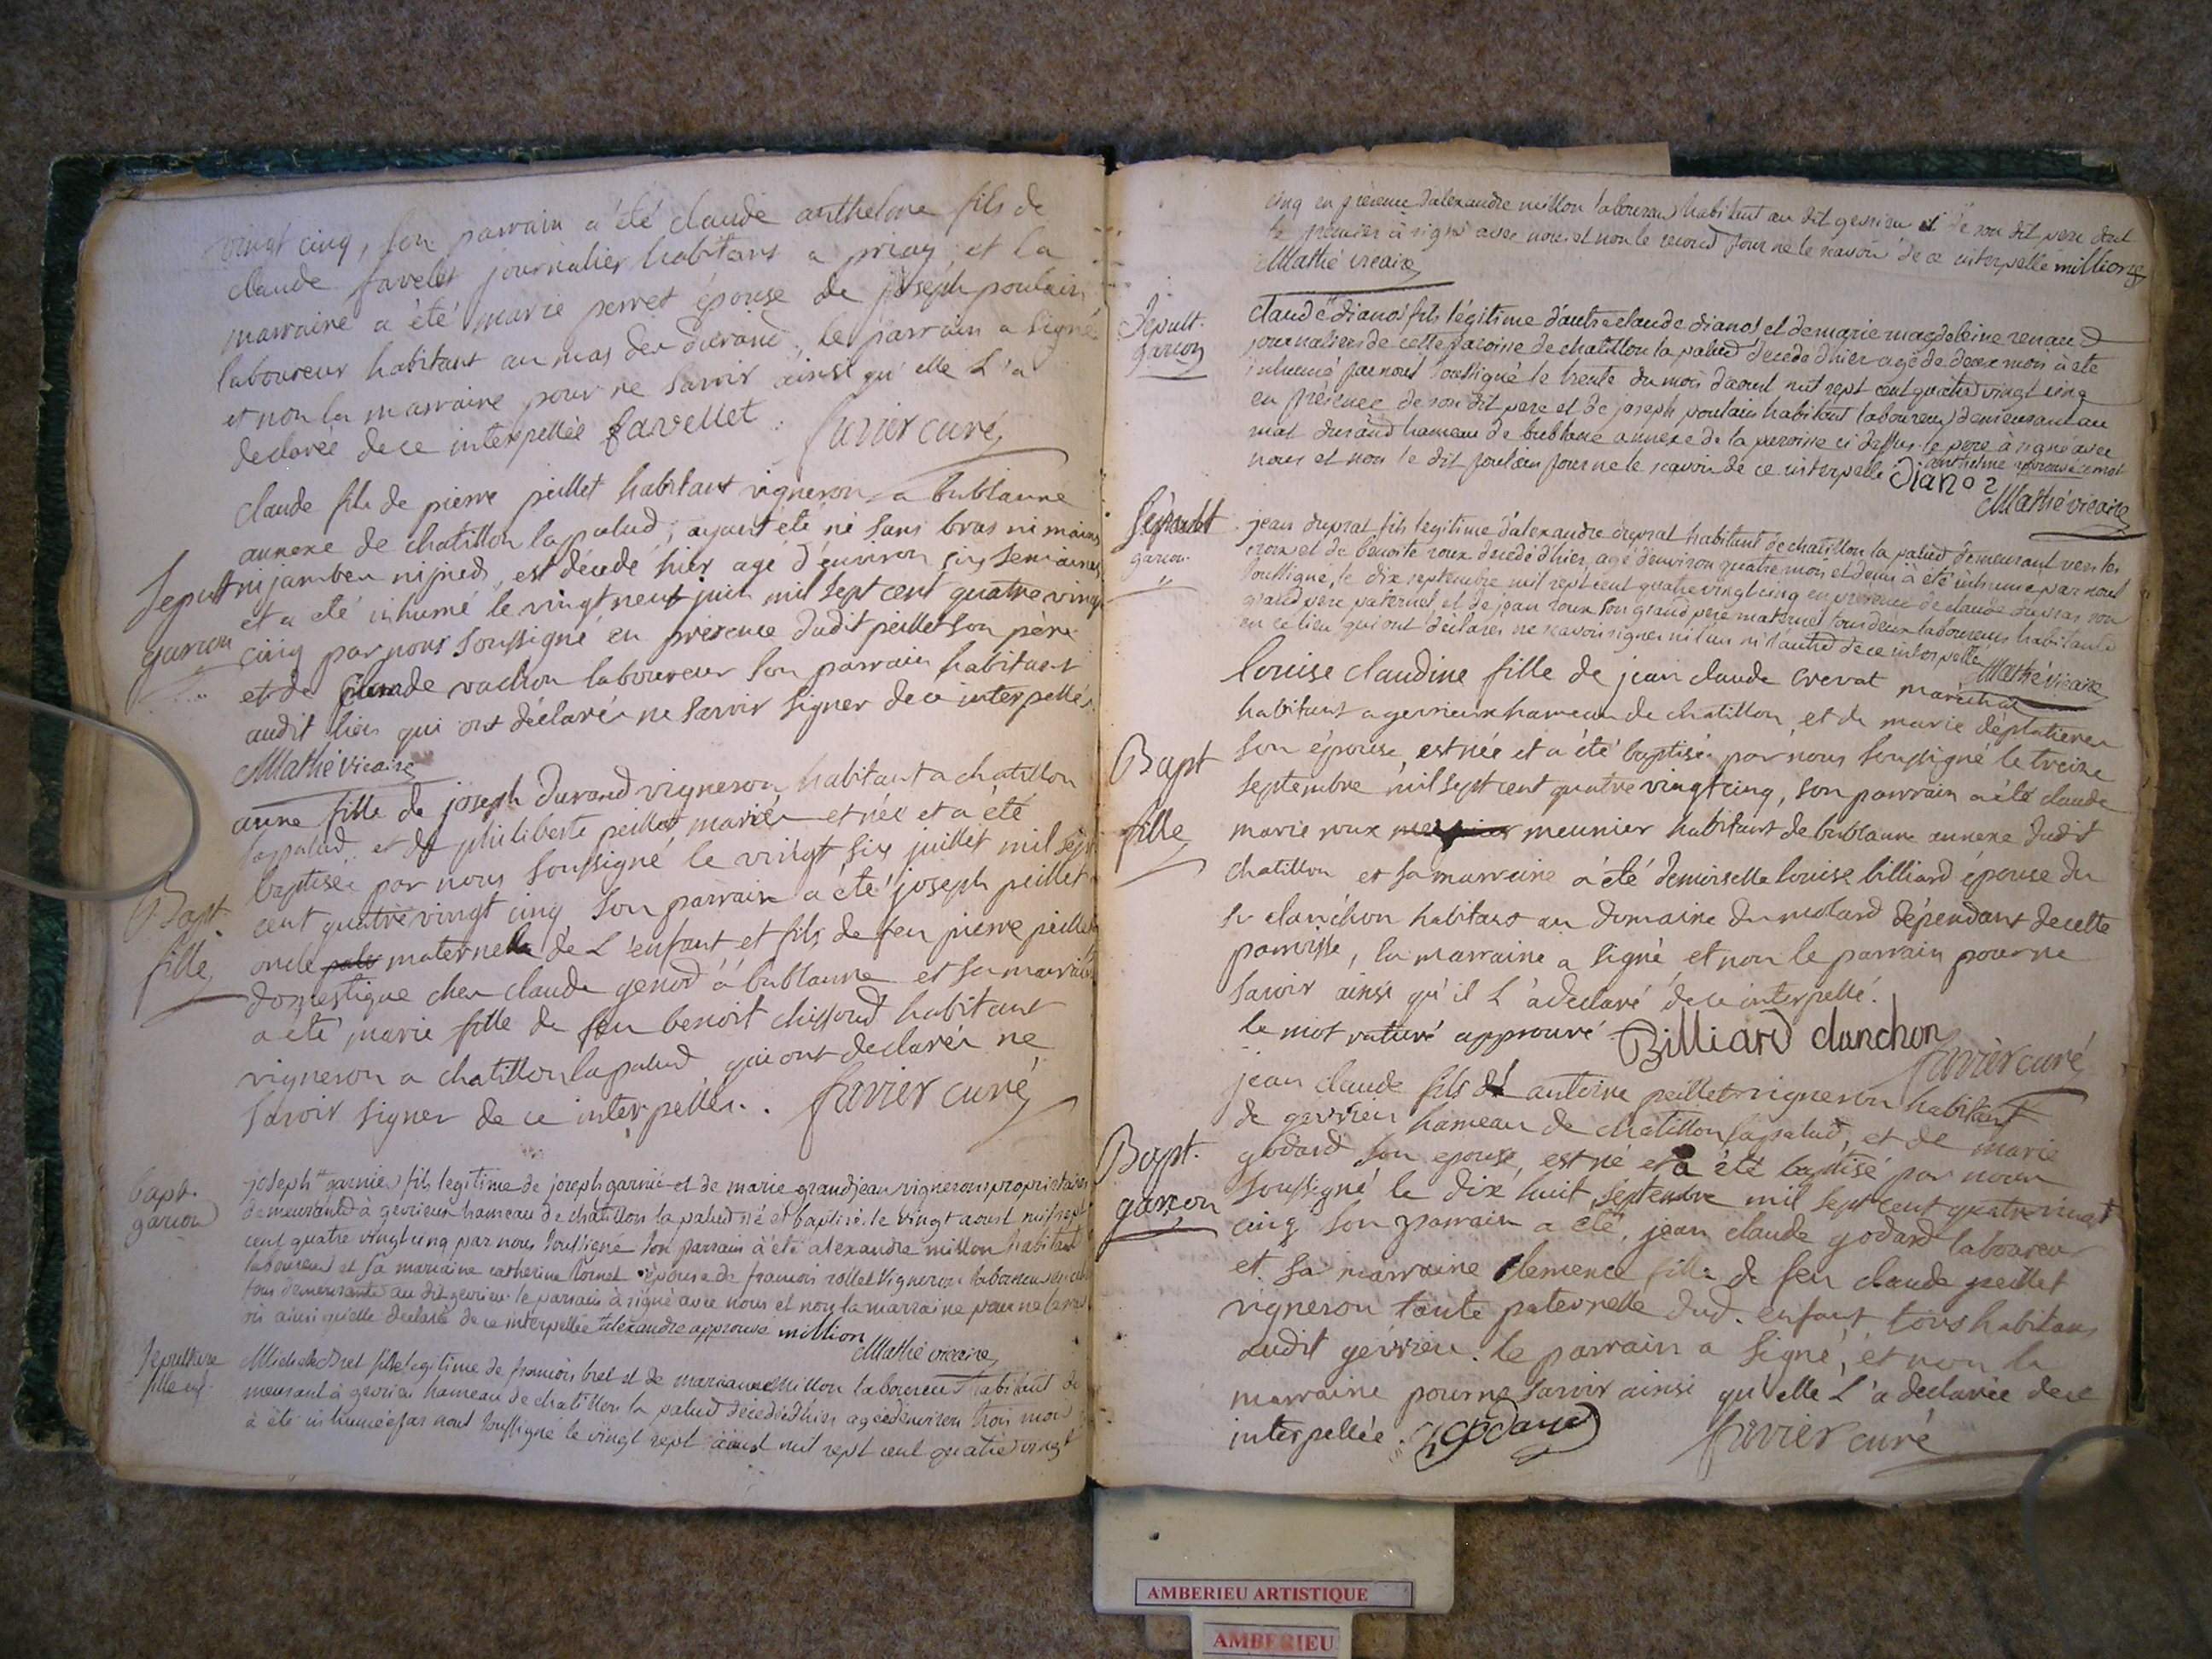 vingt cinq, son parrain a été claude anthelme fils de
claude favelet journalier habitans a priay et la
marraine a été marie perret épouse de joséph poulain
laboureur habitant au mas des durand, le parrain a signé
et non la marraine pour ne savoir ainsi qu'elle L'a
declarée de ce interpellée favellet. favier curé
claude fils de pierre peillet habitant vigneron a bublanne
annexe de chatillon la palud, ayant été né sans bras ni mains
Sepult
ni jambes ni pieds, est décédé hier agé d'environ six semaines
et a été inhumé le vingt neuf juin mil sept cent quatre vingt
garcon
cinq par nous soussigné en présence dudit peillet son père
et de claude vachon laboureur son parrain habitant
audit lieu qui ont déclarés ne savoir signer de ce interpellés.
Mathé vicaire
anne fille de joseph durand vigneron habitant a chatillon
lapalud, et de philiberte peillet mariés et née et a été
baptisée par nous soussigné le vingt six juillet mil sept
Bapt.
cent quatre vingt cinq son parrain a été joseph peillet
fille
oncle maternel de L'enfant et fils de feu pierre peillet
domestique chez claude genod à bublanne et sa marraine
a été marie fille de feu benoit chissoud habitant
vigneron a chatillon lapalud qui ont declarés ne
savoir signer de ce interpellés. favier curé
bapt.
joseph garnier fils legitime de joseph garnié et de marie grandjean vignerons proprietaires
garcon
demeurants à gevrieux hameau de chatillon la palud né et baptisé le vingt aoust mil sept
cent quatre vingt cinq par nous soussigné son parrain à été alexandre millon habitant
laboureur et sa marraine catherine tornet épouse de francois rollet vigneron laboureur
tous demeurants au dit gevrieu le parrain à signé avec nous et non la marraine pour ne le
ainsi qu'elle declaré de ce interpellée alexandre approuvé million
Mathé vicaire
Sepulture
Michele bret fille legitime de francois bret et de marianne Millon laboureur habitant
fille
meurant à gevrieu hameau de chatillon la palud décédée d'hier agée d'environ trois mois
à été inhumée par nous soussigné le vingt sept aoust mil sept cent quatre vingt
cinq en présence d'alexandre millon laboureur habitant au dit gevrieu et de son dit pere dont
le premier à signé avec nous et non le second pour ne le scavoir de ce interpellé million
Mathé vicaire
Sepult.
garcon
claude dianos fils légitime d'autre claude dianos et de marie magdeleine renaud
journaliers de cette paroisse de chatillon la palud decedé d'hier agé de deux mois à été
inhumé par nous soussigné le trente du mois d'aoust mil sept cent quatre vingt cinq
en présence de son dit pere et de joseph poulain habitant laboureur demeurant au
mas durand hameau de bublane annexe de la paroisse ci dessus le pere à signé avec
nous et non le dit poulain pour ne le scavoir de ce interpellé dianos
Mathé vicaire
Sépult
garcon
jean duprat fils legitime d'alexandre duprat habitant de chatillon la palud demeurant vers les
croix et de benoite roux decedé d'hier agé d'environ quatre mois et demi à été inhumé par nous
soussigné, le dix septembre mil sept cent quatre vingt cinq en présence de claude dupras son
grand pere paternel et de jean roux son grand pere maternel tous deux laboureurs habitants
en ce lieu qui ont declarés ne scavoir signer ni l'un ni l'autre de ce interpellé
Mathé vicaire
louise claudine fille de jean claude crevat maréchal
habitant a gevrieux hameau de chatillon, et de marie déplatieres
Bapt
son épouse, est née et a été baptisée par nous soussigné le treize
septembre mil sept cent quatre vingt cinq, son parrain a été claude
fille
marie roux meunier habitant de bublanne annexe dudit
chatillon et sa marraine a été demoiselle louise billiard épouse du
sr clanchon habitant au domaine du molard dépendant de cette
paroisse, la marraine a signé et non le parrain pour ne
savoir ainsi qu'il L'a declaré de ce interpellé.
le mot raturé approuvé Billiard clanchon
favier curé
jean claude fils de antoine peillet vigneron habitant
de gevrieu hameau de chatillon lapalud, et de marie
Bapt.
godard son epouse, est né et a été baptisé par nous
garçon
soussigné le dix huit septembre mil sept cent quatre vingt
cinq son parrain a été jean claude godard laboureur
et sa marraine clemence fille de feu claude peillet
vigneron tante paternelle dud. enfant tous habitans
audit gévrieu. le parrain a signé, et non la
marraine pour ne savoir ainsi qu'elle L'a declarée de ce
interpellée. godard favier curé
AMBERIEU ARTISTIQUE
AMBERIEU